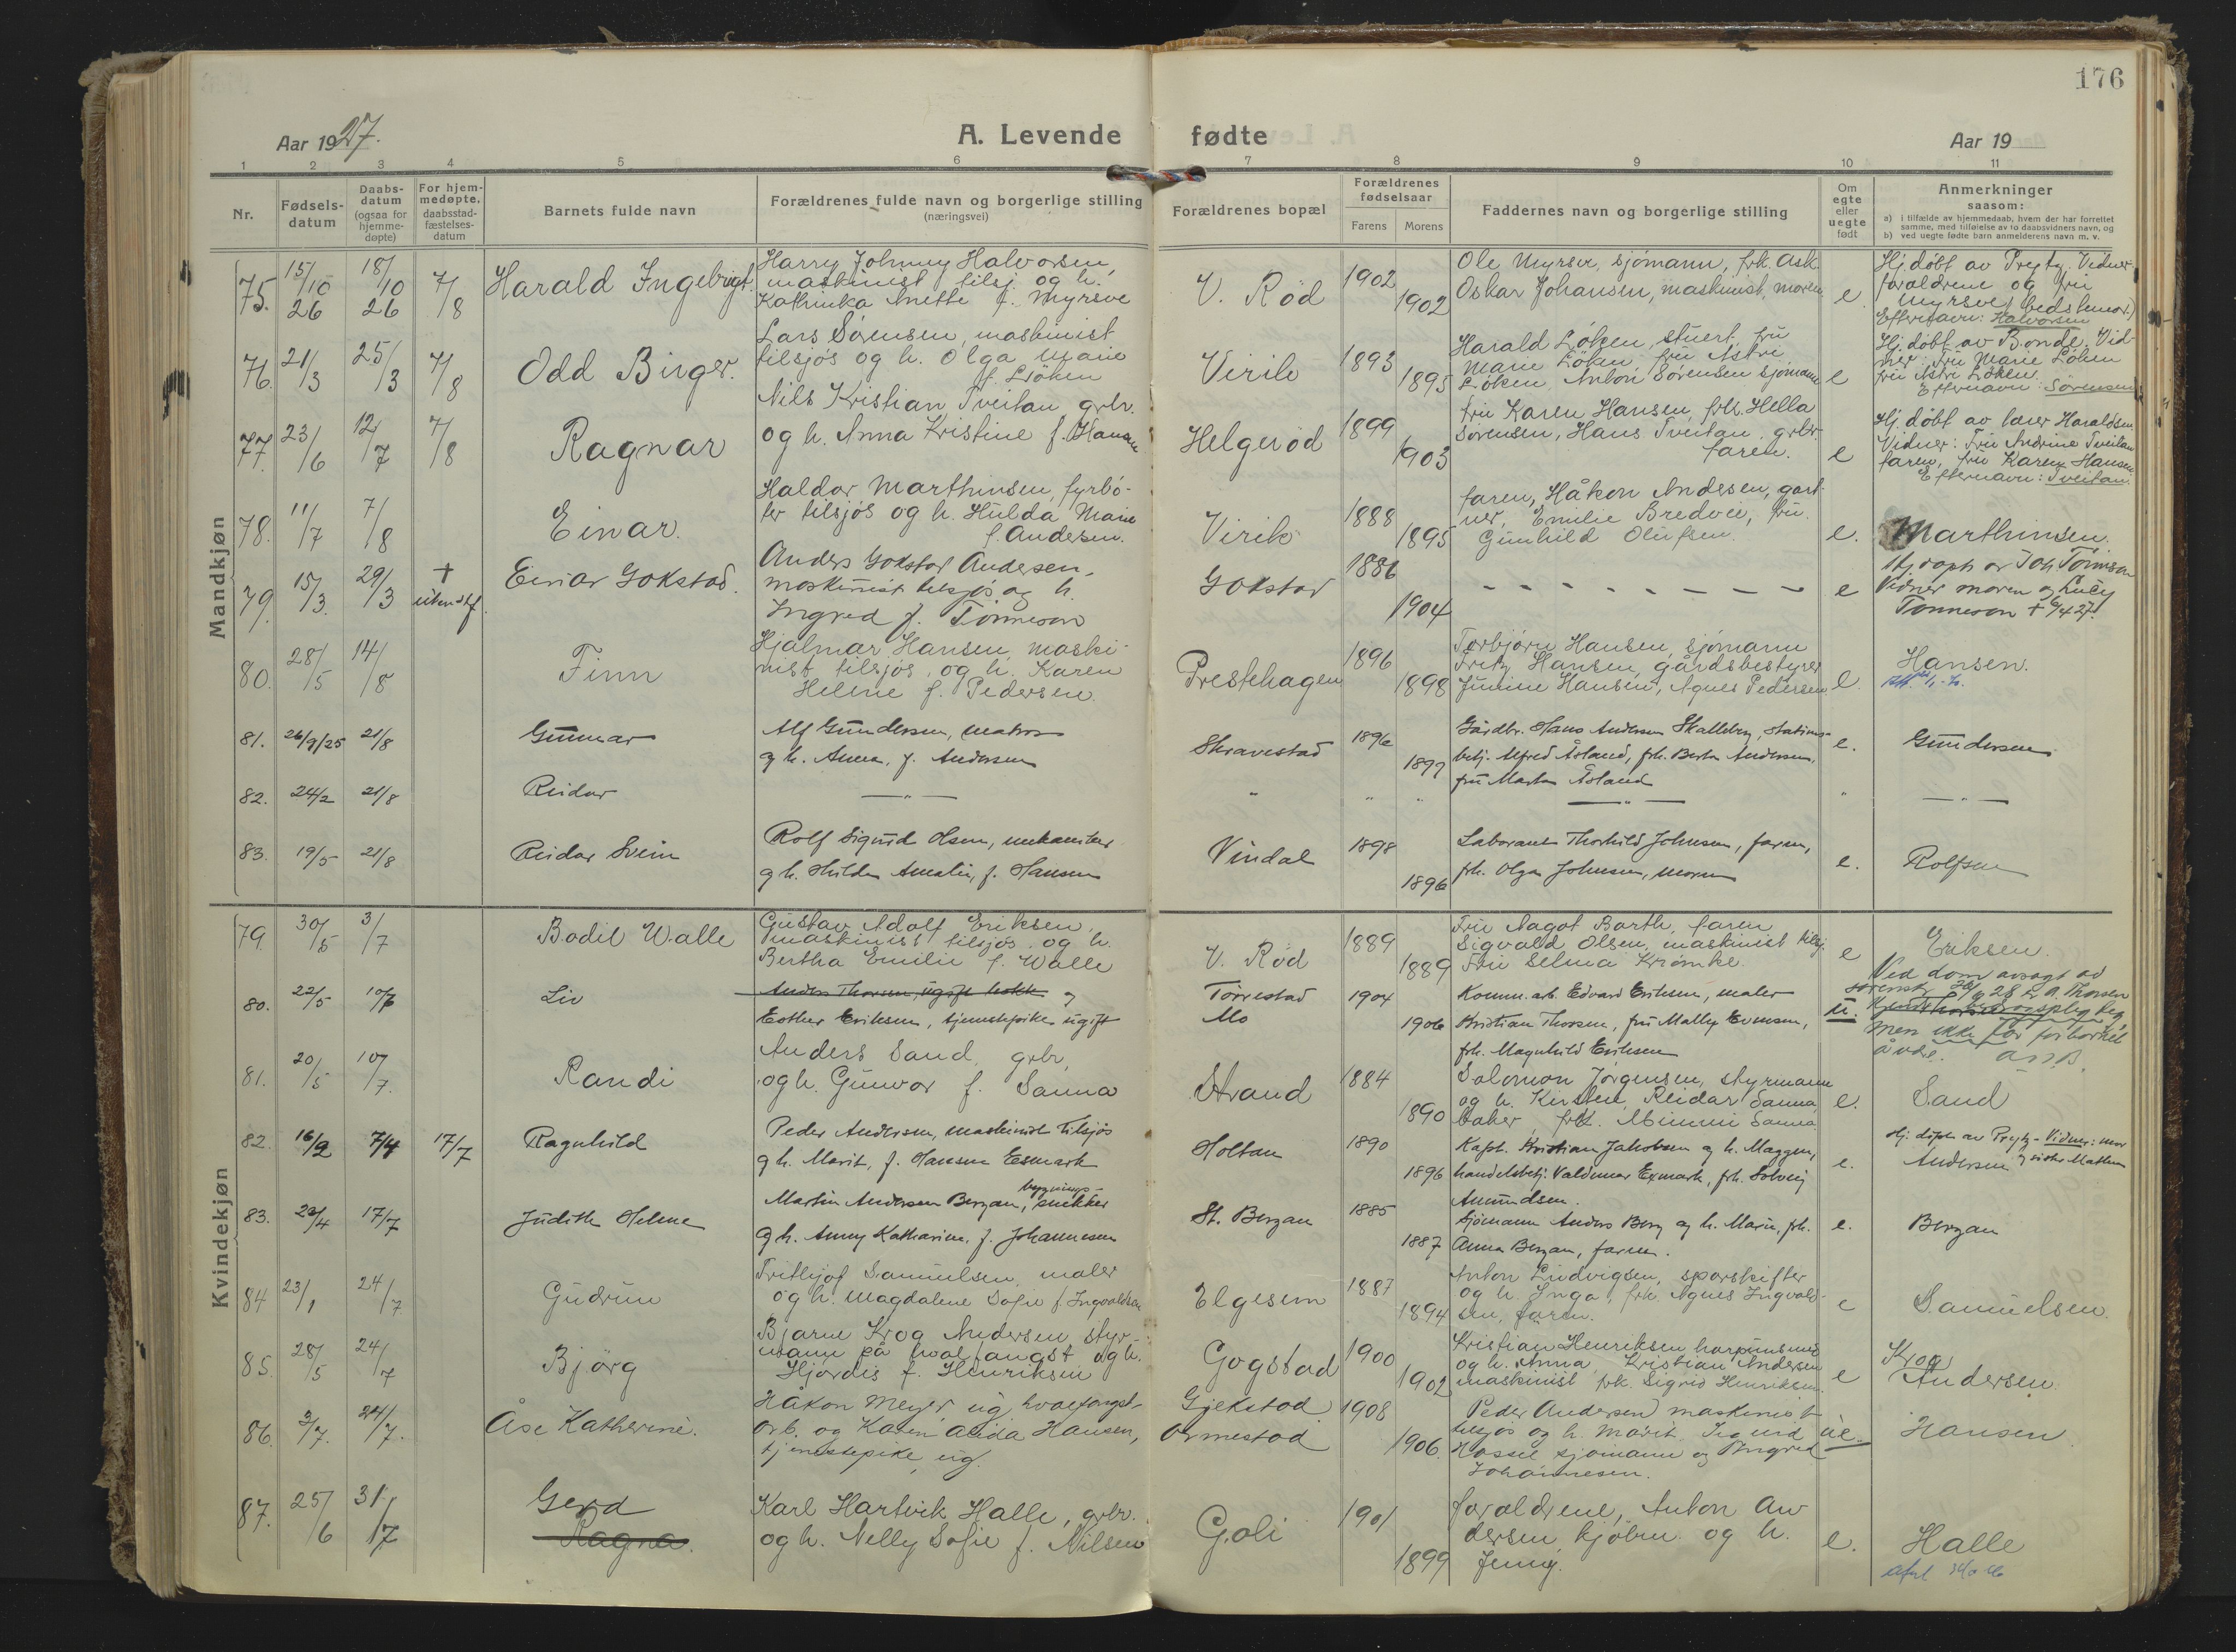 176
Aar 1927.
A. Levende fødte
Aar 19
1 2 3 4 5 6 7 8 9 10 11
Nr.
Fødselsdatum
Daabsdatum (ogsaa for hjemmedøpte)
For hjemmedøpte, daabsstadfæstelsesdatum
Barnets fulde navn
Forældrenes fulde navn og borgerlige stilling
(næringsvei)
Forældrenes bopæl
Forældrenes fødselsaar
Farens Morens
Faddernes navn og borgerlige stilling
Om egte eller uegte født
Anmerkninger
saasom:
a) i tilfælde av hjemmedaab, hvem der har forrettet
samme, med tilføielse av to daabsvidners navn, og
b) ved uegte fødte barn anmelderens navn m. v.
Mandkjøn
75. 15/10 26 18/10 26 7/8 Harald Ingebrigt.
Harry Johnny Halvorsen,
maskinist tilsj. og h.
Kathinka Anette f. Myrsve
V. Rød 1902 1902
Ole Myrsve, sjømann, frk. Ask
Oskar Johansen, maskinist, moren
e.
Hj. døbt av Prytz. Vidner
foraldrene og fru
Myrsve (bedstemor.)
Efternavn: Halvorsen
76. 21/3 25/3 7/8 Odd Birger.
Lars Sørensen, maskinist
tilsjøs og h. Olga Marie
f. Løken
Virik 1893 1895
Harald Løken, stuert, fru
Marie Løken, fru Astri
Løken, Anton Sørensen sjømann
e
Hj. døbt av Bonde. Vid-
ner: Fru Marie Løken
fru Astri Løken.
Efternavn: Sørensen
77. 23/6 12/7 7/8 Ragnar
Nils Kristian Tveitan grbr.
og h. Anna Kristine f. Hansen
Helgerød 1899 1903
fru Karen Hansen, frk. Hella
Sørensen, Hans Tveitan, grbr.
faren.
e
Hj. døbt av lærer Haraldsen
Vidner: Fru Andrine Tveitan
faren, fru Karen Hansen
Efternavn: Tveitan.
78. 11/7 7/8 Einar.
Haldor Marthinsen, fyrbø-
ter tilsjøs og h. Hulda Marie
f. Andersen.
Virik 1888 1895
faren, Håkon Andersen, gart-
ner, Emilie Bredvei, fru
Gunhild Olufsen.
e.
Marthinsen.
79. 15/3. 29/3 + Einar Gokstad.
Anders Gokstad Andersen,
maskinist tilsjøs og h.
Ingred f. Tønneson
Gokstad 1886 1904
e
Vidner moren og Lucy
Tønneson + 9/4 27.
80. 28/5 14/8 Finn
Hjalmar Hansen, maski-
nist tilsjøs, og h. Karen
Helene f. Pedersen.
Prestehagen 1896 1898
Torbjørn Hansen, sjømann
Fritz Hansen, gårdsbestyrer
Jensine Hansen, Agnes Pedersen
e.
Hansen.
81. 26/9/25 21/8 Gunnar
Alf Gundersen, matros
g h. Anna, f. Andersen
Skravestad 1896 1897
Gårdbr. Hans Andersen Skalleberg, stations-
betj. Alfred Åsland, frk. Berta Andersen,
fru Marta Åsland
e.
Gundersen
82. 24/2 21/8 Reidar
—"— " " " —"— " —"—
83. 19/5 21/8 Reidar Svein
Rolf Sigurd Olsen, mekaniker
g h. Hilda Amalie, f. Hansen
Vindal 1898 1896
Laborant Thorhild Johnsen, faren,
frk. Olga Johnsen, moren
e.
Rolfsen
Kvindekjøn
79. 30/5 3/7 Bodil Walle
Gustav Adolf Eriksen,
maskinist tilsjøs og h.
Bertha Emilie f. Walle
V. Rød 1889 1889
Fru Aagot Barth, faren
Sigvald Olsen, maskinist tilsj.
Fru Selma Krømke.
e
Eriksen.
80. 22/5 10/7 Liv
Anders Thorsen, ugift kokk og
Esther Eriksen, tjenestepike ugift
Torrestad
Mo
1904 1906
Komm. arb. Edvard Eriksen, maler
Kristian Thorsen, fru Mally Evensen,
frk. Magnhild Eriksen
u.
Ved dom avsagt av
men ikke far for barnet
81. 20/5 10/7. Randi
Anders Sand, grbr,
og h. Gunvor f. Sanna
Strand 1884 1890
Salomon Jørgensen, styrmann
og h. Kirstine, Reidar Sanna,
baker, frk. Mimmi Sanna
e.
Sand
82. 16/2 7/4 17/7 Ragnhild
Peder Andersen, maskinist tilsjøs
g h. Marit, f. Hansen Esmark
Holtan 1890 1896
Kapt. Kristian Jakobsen g h. Maggen,
handelsbetj. Valdemar Exmark, frk. Solveig
Amundsen.
e.
Hj. døpt av Prytz - Vidner: mor
Andersen
83. 23/4 17/7 Judith Helene
Martin Andersen Bergan, bygnings-snikker
g h. Anny Katharina, f. Johannesen
St. Bergan 1885 1887
Sjømann Anders Berg og h. Marie, frk.
Anna Bergan, faren.
e.
Bergan
84 23/1 24/7 Gudrun
Frithjof Samuelsen, maler
og h. Magdalene Sofie f. Ingvaldsen
Elgesem 1887 1894
Anton Ludvigsen, sporskifter
og h. Inga, frk. Agnes Ingvald-
sen, faren.
e
Samuelsen.
85. 28/5 24/7 Bjørg
Bjarne Krog Andersen, styr-
mann på hvalfangst og h.
Hjørdis f. Henriksen
Gogstad 1900 1902
Kristian Henriksen harpunsmed
og h. Anna, Kristian Andersen
maskinist frk. Sigrid Henriksen.
e
Krog
Andersen.
86. 3/7. 24/7. Åse Katherine.
Håkon Meyer, ug. hvalfangst-
arb. og Karen Alida Hansen,
tjenestepike, ug.
Gjekstad
Ormestad
1908 1906.
Peder Andersen maskinist
tilsjøs og h. Marit, Sigurd
Hassel sjømann og Ingrid
Johannesen.
ue.
Hansen.
87. 25/6 31/7 Gerd
Ragna.
Karl Hartvik Halle, grbr.
og h. Nelly Sofie f. Nilsen
Goli 1901 1899
foraldrene, Anton An-
dersen kjøbm. og h.
Jenny.
e.
Halle